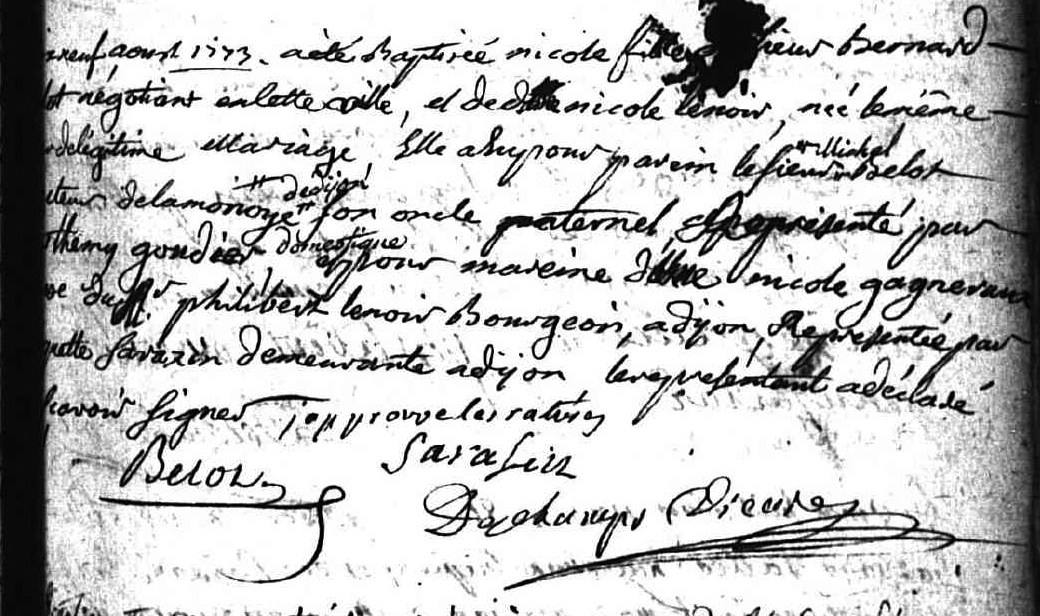 neuf aoust 1773. a été Baptisée nicole fille sieur Bernard
négotiant en cette ville, et de dlle nicole lenoir, née le même
de légitime Mariage, Elle a Eu pour parein le sieur Michel Belot
delamonoye de dijon son oncle paternel Représenté par
goudier domestique et pour mareine dlle nicole gagneraux
du Sr philibert lenoir Bourgeois, a dijon, Représentée par
Sarazin demeurante a dijon, le représentant a déclaré
scavoir signer japprouve les ratures
Belot
Sarasin
Deschamps Vicaire